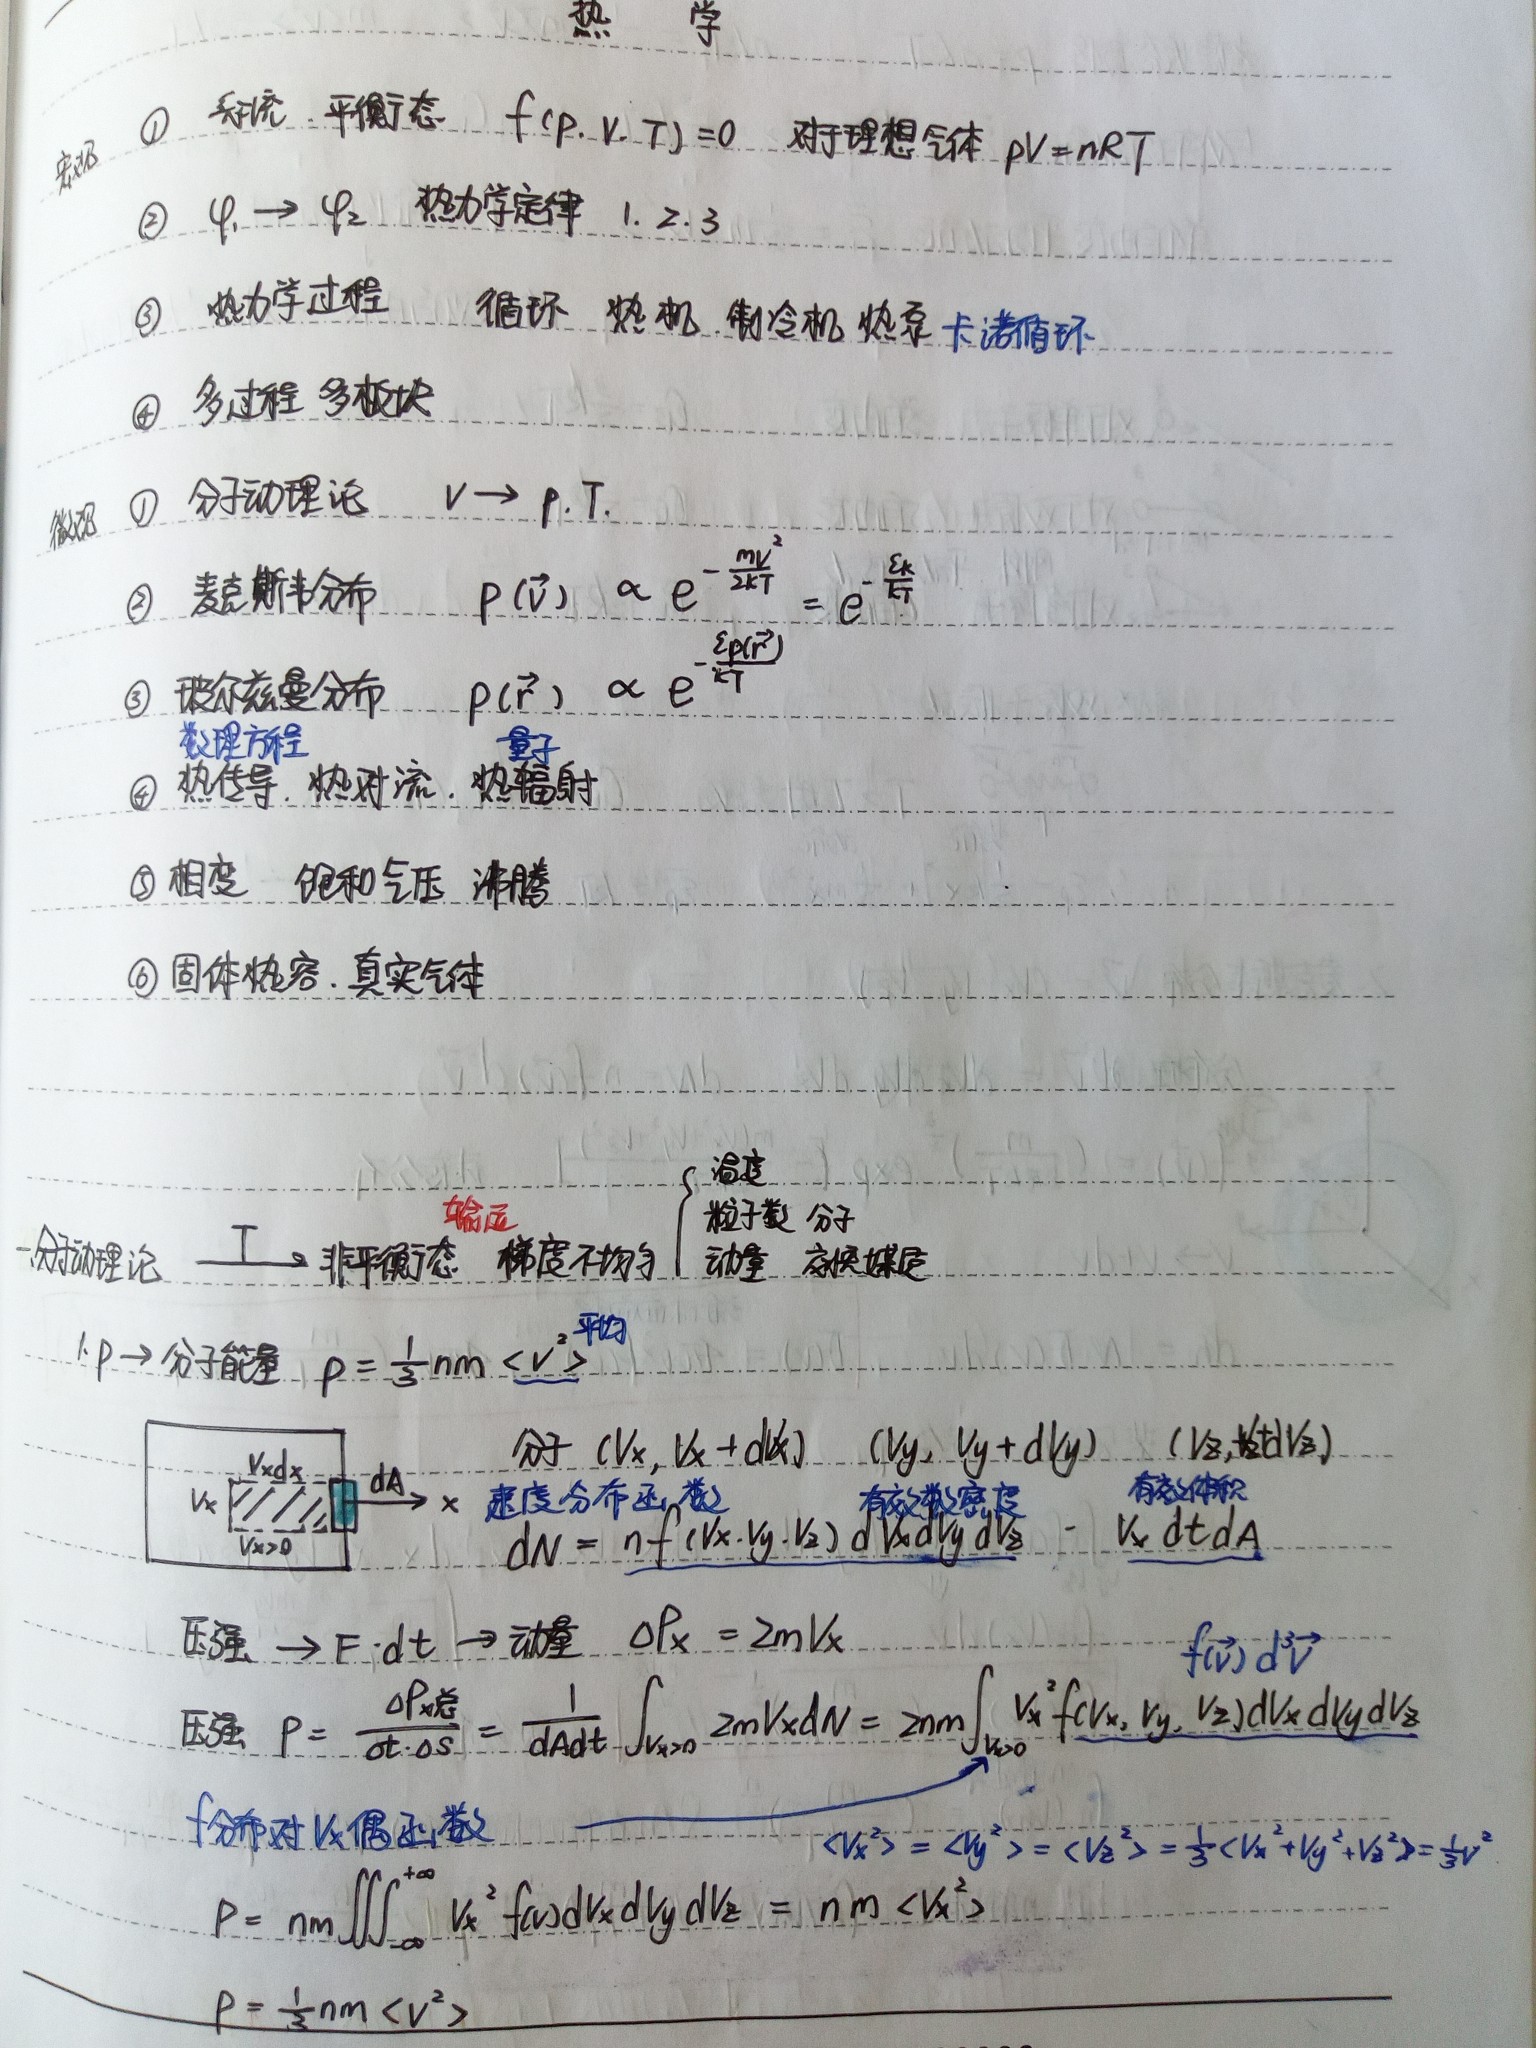 热 学
宏观 ① 系统.平衡态 f(p.V.T)=0 对于理想气体 pV=nRT
② φ₁→φ₂ 热力学定律 1.2.3
③ 热力学过程 循环 热机.制冷机 热泵 卡诺循环
④ 多过程 多板块
微观 ① 分子动理论 v→p.T.
② 麦克斯韦分布 p(v⃗) ∝ e^(-mv²/2kT) = e^(-εk/kT)
③ 玻尔兹曼分布 p(r⃗) ∝ e^(-εp(r⃗)/kT)
数理方程 量子
④ 热传导.热对流.热辐射
⑤ 相变 饱和气压 沸腾
⑥ 固体热容.真实气体
温度
输运 粒子数 分子
一.分子动理论 T→ 非平衡态 梯度不均匀 { 动量 交换媒质
平均
1.p→分子能量 p=⅓nm<v²>
分子 (Vx, Vx+dVx) (Vy, Vy+dVy) (Vz, Vz+dVz)
Vxdx dA
Vx x
Vx>0
速度分布函数 有效数密度 有效体积
dN = nf(Vx.Vy.Vz)dVxdVydVz - Vx dtdA
压强→F·dt→动量 ΔPx = 2mVx
f(v⃗)d³v⃗
压强 P = ΔPx总/(Δt·ΔS) = 1/(dAdt) ∫_(Vx>0) 2mVxdN = 2nm∫_(Vx>0) Vx²f(Vx, Vy, Vz)dVxdVydVz
f分布对Vx偶函数
<Vx²> = <Vy²> = <Vz²> = ⅓<Vx²+Vy²+Vz²> = ⅓v²
P = nm∭_(-∞)^(+∞) Vx² f(v)dVxdVydVz = nm<Vx²>
P = ⅓nm<v²>